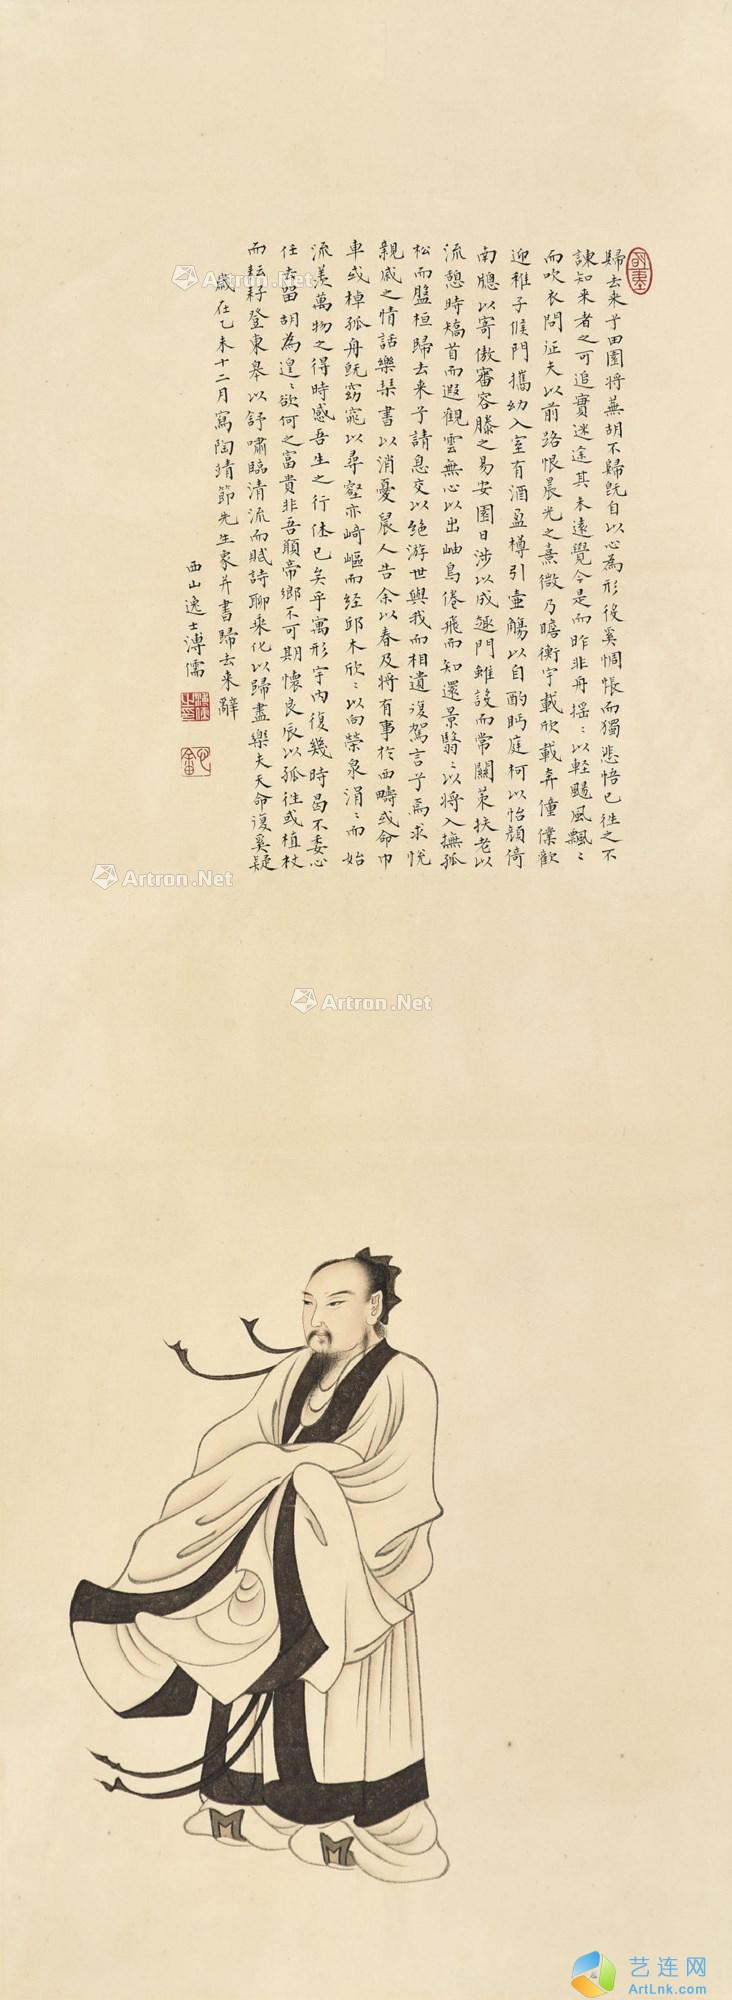 歸去来兮田園將蕪胡不歸既自以心為形役奚惆悵而獨悲悟已往之不
諫知来者之可追實迷途其未遠覺今是而昨非舟摇〻以軽颺風飄〻
而吹衣問征夫以前路恨晨光之熹微乃瞻衡宇載欣載奔僮僕歡
迎稚子候門攜幼入室有酒盈樽引壷觴以自酌眄庭柯以怡顏倚
南牕以寄傲審容膝之易安園日涉以成趣門雖設而常關策扶老以
流憩時矯首而遐觀雲無心以出岫鳥倦飛而知還景翳〻以將入撫孤
松而盤桓歸去来兮請息交以绝游世與我而相遺復駕言兮焉求悅
親戚之情話樂琹書以消憂農人告余以春及將有事於西疇或命巾
車或棹孤舟既窈窕以尋壑亦崎嶇而经邱木欣〻以向榮泉涓〻而始
流羨萬物之得時感吾生之行休已矣乎寓形宇內復幾時曷不委心
任去留胡為遑〻欲何之富貴非吾願帝鄉不可期懷良辰以孤往或植杖
而耘耔登東皋以舒嘯臨清流而賦詩聊乘化以歸盡樂夫天命復奚疑
歲在乙未十二月寫陶靖節先生象并書歸去来辭
西山逸士溥儒
Artron.Net
Artron.Net
Artron.Net
Artron.Net
Artron.Net
艺连网
ArtLnk.com